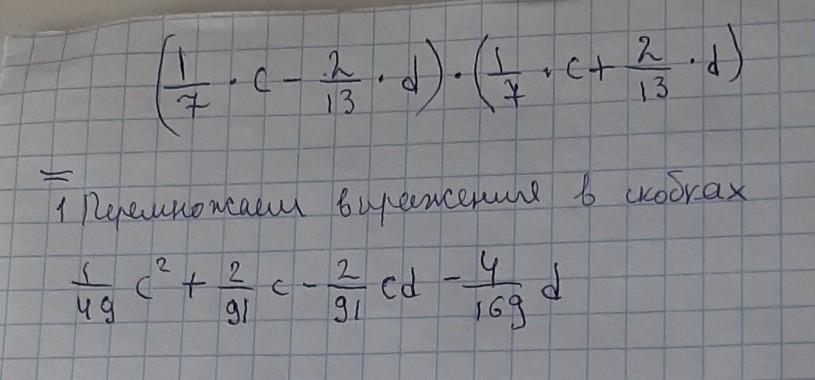 (1/7 · c − 2/13 · d) · (1/7 · c + 2/13 · d)
=
1 Перемножаем выражения в скобках
1/49 c² + 2/91 c − 2/91 cd − 4/169 d